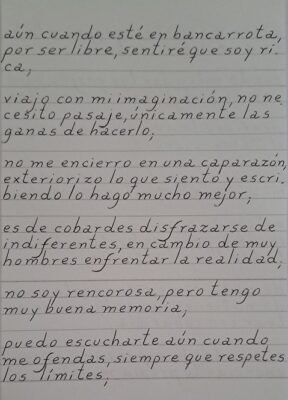 aún cuando esté en bancarrota,
por ser libre, sentiré que soy ri-
ca;
viajo con mi imaginación, no ne
cesito pasaje, únicamente las
ganas de hacerlo;
no me encierro en una caparazón,
exteriorizo lo que siento y escri-
biendo lo hago mucho mejor;
es de cobardes disfrazarse de
indiferentes, en cambio de muy
hombres enfrentar la realidad;
no soy rencorosa, pero tengo
muy buena memoria;
puedo escucharte aún cuando
me ofendas, siempre que respetes
los límites;